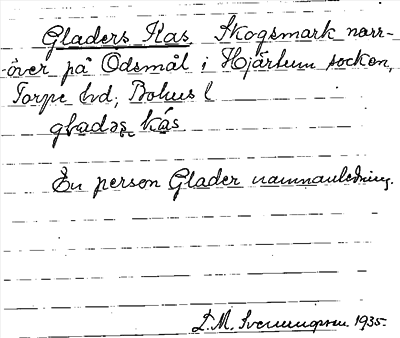 Gladers Kas. Skogsmark norr-
över på Ödsmål i Hjärtum socken,
Torpe hd, Bohus l
gladəs kås
En person Glader namnanledning.
D. M. Svenungsson 1935.